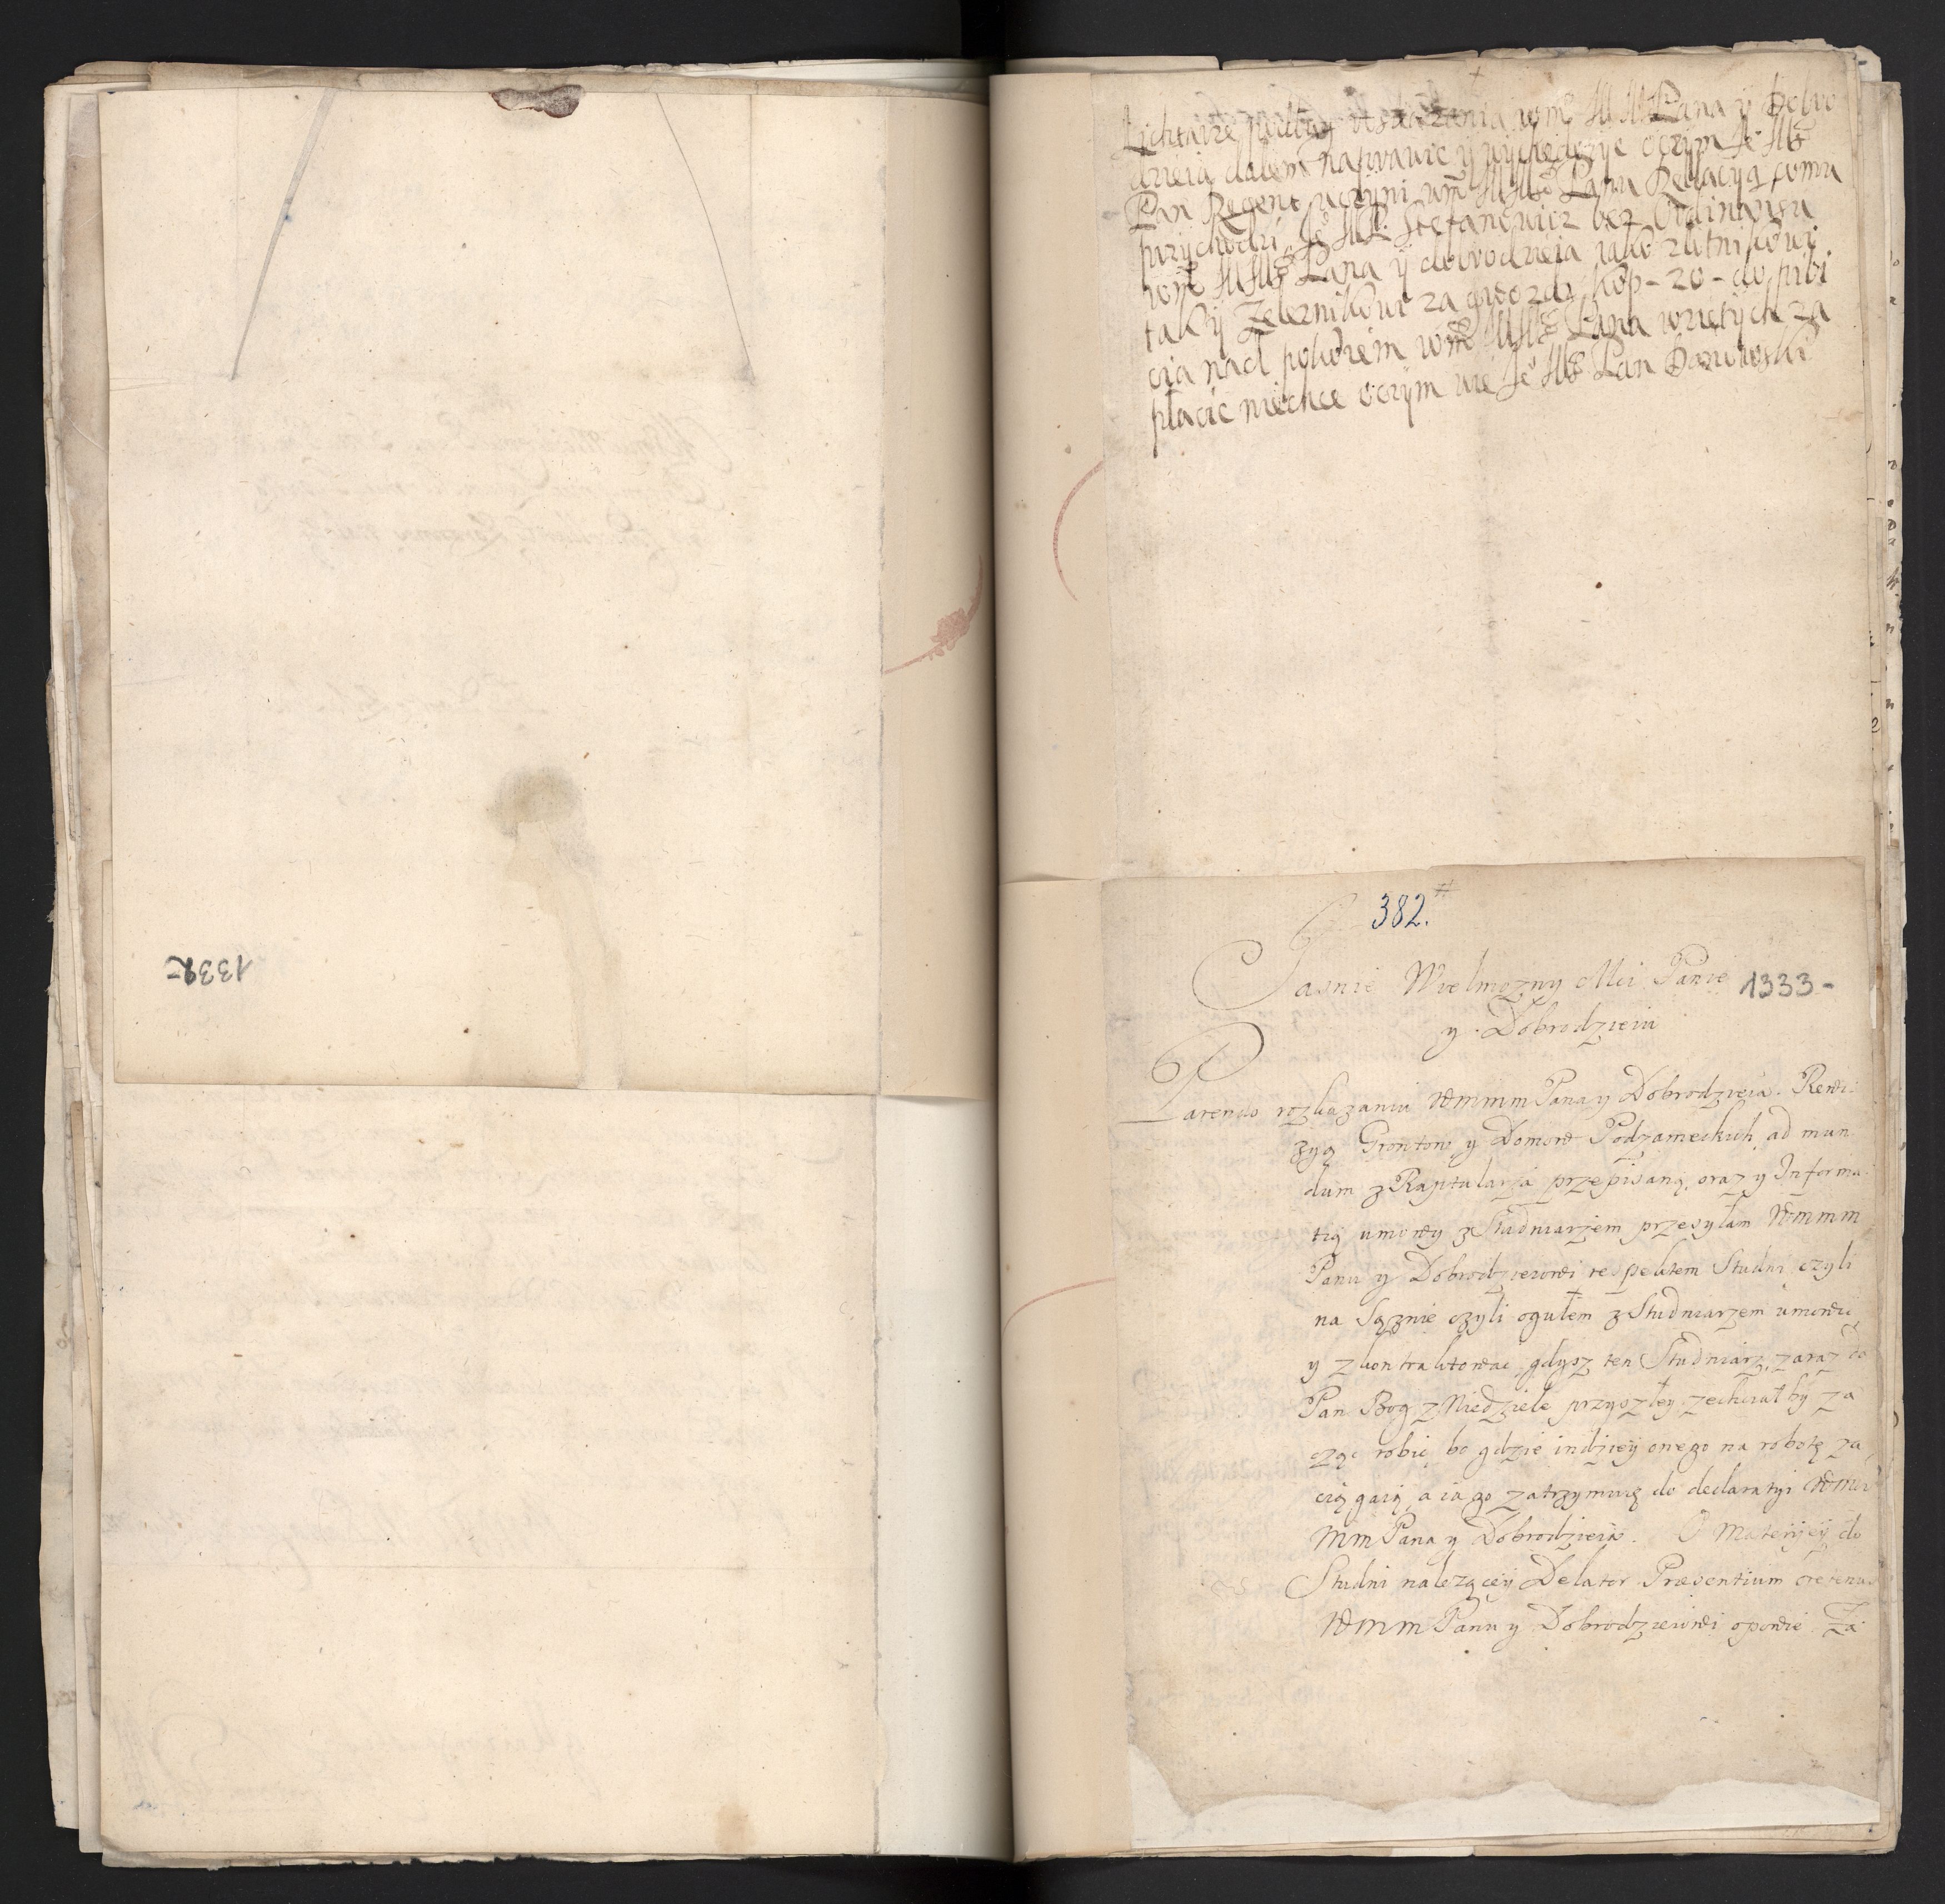 1332
Lichtarze podług rosskazania wm̃ MM Pana y Dobro
dzieia dałem naprawic y wychędożyc oczym Je͂ Mc̃
Pan Regent uczyni wm̃ MMc̃ Panu Relacyą komu
przychodzi Je͂ MP. Stefanowicz bez Ordinansu
wm̃ MMc̃ Pana y dobrodzieia iako złotnikowi
tak y Zeleznikowi za gwozdzi kop - 20 - do pribi
cia nad pokoiem wm̃ MMc̃ Pana wziętych za
płacic niechce oczym wie Je͂ Mc̃ Pan Danowski
382.#
Jasnie Wielmozny Mci Panie
1333-
y Dobrodzieiu
Parendo rozkazaniu WMmm Pana y Dobrodzieia. Rewi
zyą Grontow y Domow Podzameckich ad mun
dum z Raptularza przepisaną, oraz y Informa
tią umowy z Studniarzem przesyłam WMmm
Panu y Dobrodzieiowi respektem Studni czyli
na Sążnie czyli ogułem z Studniarzem umowic
y zkontraktowac gdysz ten Studniarz, zaraz da
Pan Bog z Niedziele przyszłey zechciał by za
cząc robic, bo gdzie indziey onego na robotę za
ciągaią, a ia go zatrzymuię do declaratyi WMm
Mm Pana y Dobrodzieia. O Materyey do
Studni nalezącey Delator Præsentium oretenus
WMmm Panu y Dobrodzieiowi opowie. Za